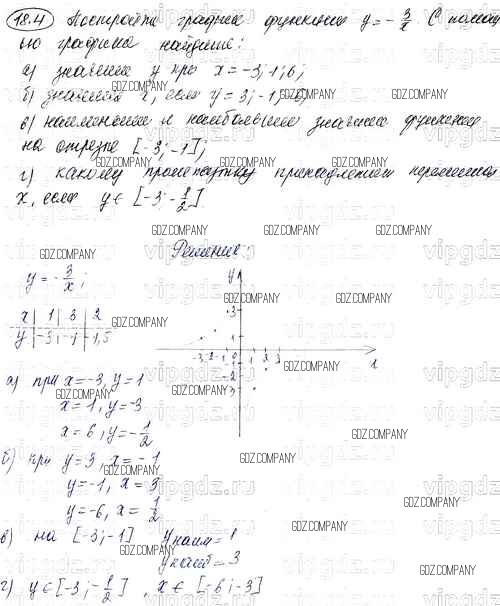 18.4 Постройте график функции y = - 3/x С помощью
ю графика найдите:
а) значение y при x = -3; 1; 6;
б) значения x, если y = 3; -1; 
в) наименьшее и наибольшее значение функции
на отрезке [-3; -1];
г) какому промежутку принадлежит переменная
x, если y ∈ [-3; -1/2]
Решение:
y = - 3/x ;
x | 1 | 3 | 2
y | -3 | -1 | -1,5
y
3
1
-3 -2 -1 0 1 2 3
x
-1
-2
-3
а) при x = -3, y = 1
x = 1, y = -3
x = 6, y = - 1/2
б) при y = 3, x = -1
y = -1, x = 3
y = -6, x = 1/2
в) на [-3; -1] yнаим = 1
yнаиб = 3
г) y ∈ [-3; -1/2], x ∈ [-6; -3]
GDZ.COMPANY
vipgdz.ru